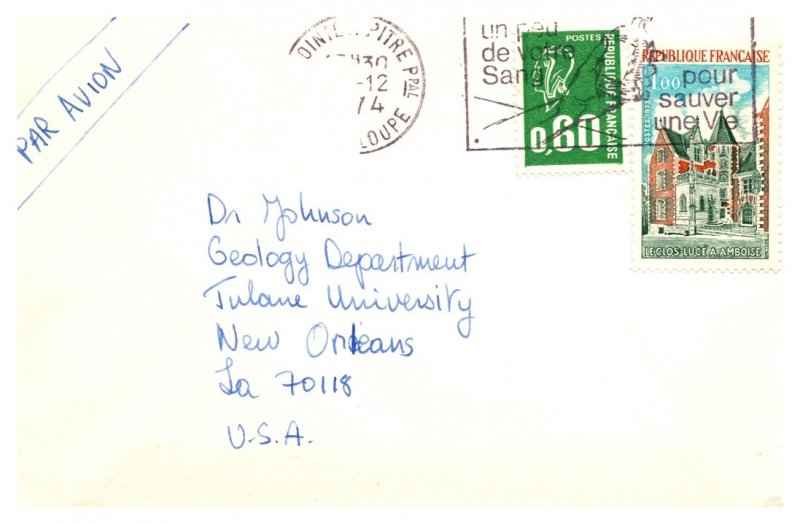 PAR AVION
OINTE A PITRE PPAL
H30
-12
74
LOUPE
un peu
de votre
Sang
pour
sauver
une Vie
POSTES
REPUBLIQUE FRANÇAISE
0,60
REPUBLIQUE FRANÇAISE
1,00
POSTES 1973
LE CLOS-LUCÉ A AMBOISE
Dr Johnson
Geology Department
Tulane University
New Orleans
La 70118
U.S.A.